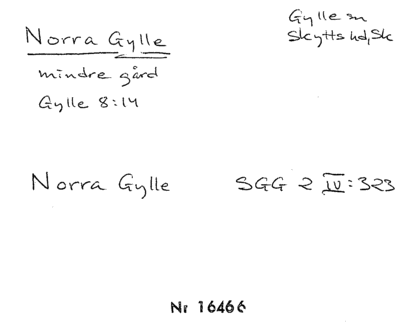 Norra Gylle
Gylle sn
Skytts hd, Sk
mindre gård
Gylle 8:14
Norra Gylle SGG 2 IV:323
Nr 16466